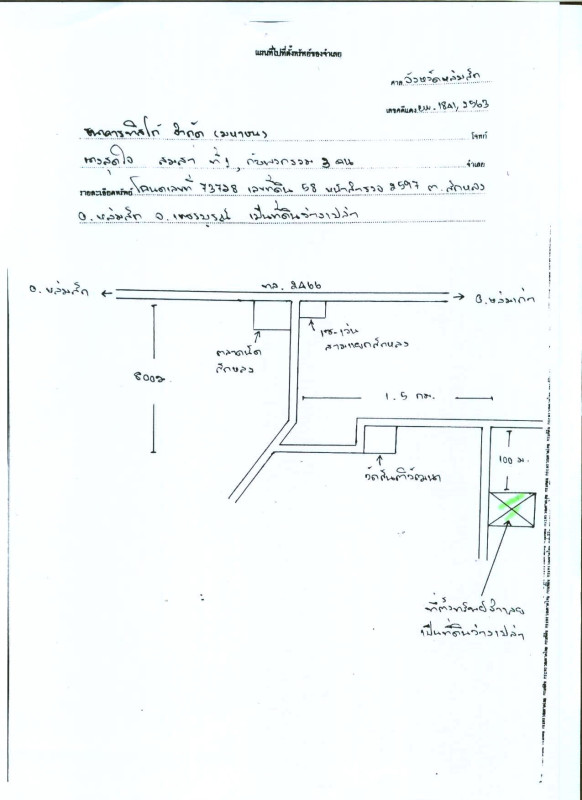 แผนที่ไปที่ตั้งทรัพย์ของจำเลย
ศาล จังหวัดหล่มสัก
เลขคดีแดง ผบ. 1841/2563
ธนาคารทิสโก้ จำกัด (มหาชน) โจทก์
นางสุดใจ ที่ 1, กับพวกรวม 3 คน จำเลย
รายละเอียดทรัพย์ โฉนดเลขที่ 73728 เลขที่ดิน 58 หน้าสำรวจ 2597 ต. สักหลง
อ. หล่มสัก จ. เพชรบูรณ์ เป็นที่ดินว่างเปล่า
ทล. 2466
อ. หล่มสัก
อ. หล่มเก่า
ตลาดนัด
สักหลง
เซเว่น
สามแยกสักหลง
800 ม.
1.5 กม.
100 ม.
ที่ตั้งทรัพย์จำเลย
เป็นที่ดินว่างเปล่า